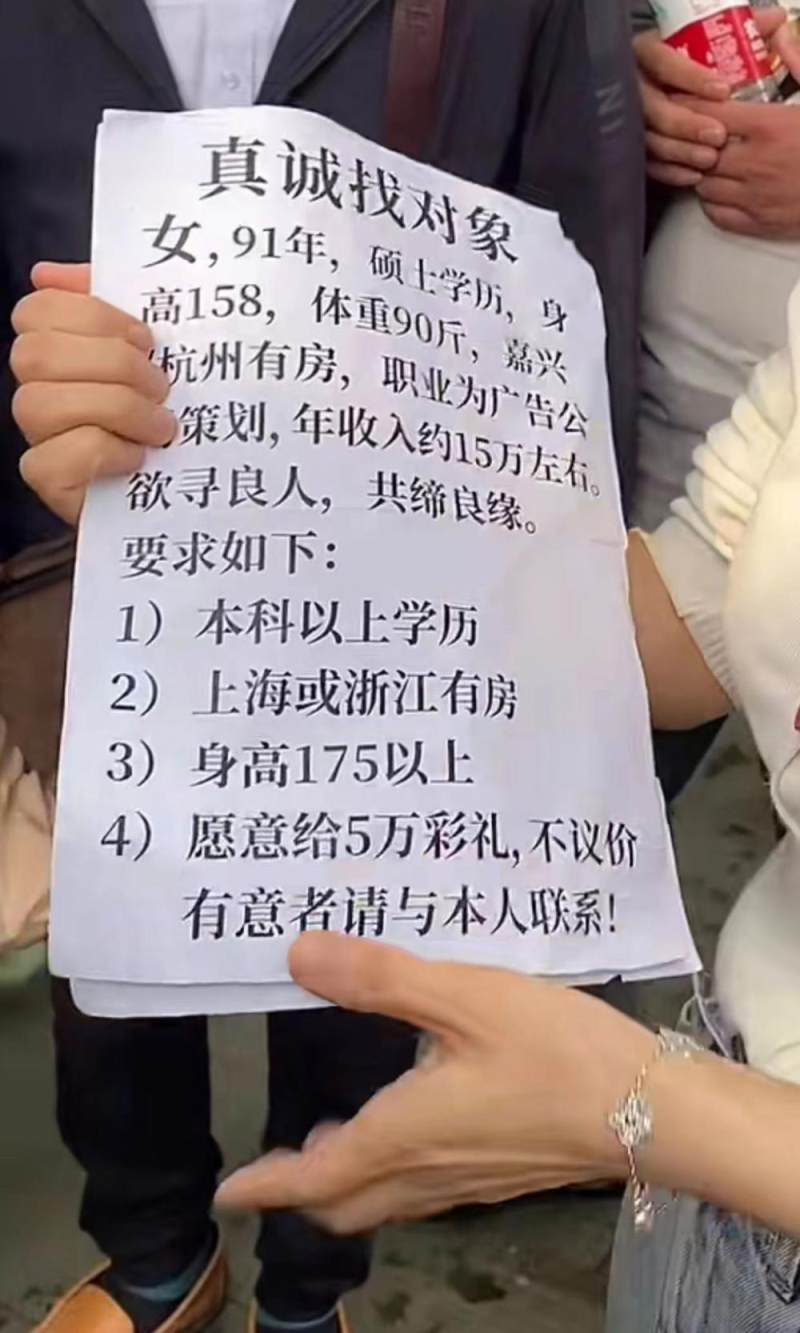 真诚找对象
女,91年,硕士学历,身
高158,体重90斤,嘉兴
杭州有房,职业为广告公
策划,年收入约15万左右。
欲寻良人,共缔良缘。
要求如下:
1)本科以上学历
2)上海或浙江有房
3)身高175以上
4)愿意给5万彩礼,不议价
有意者请与本人联系!